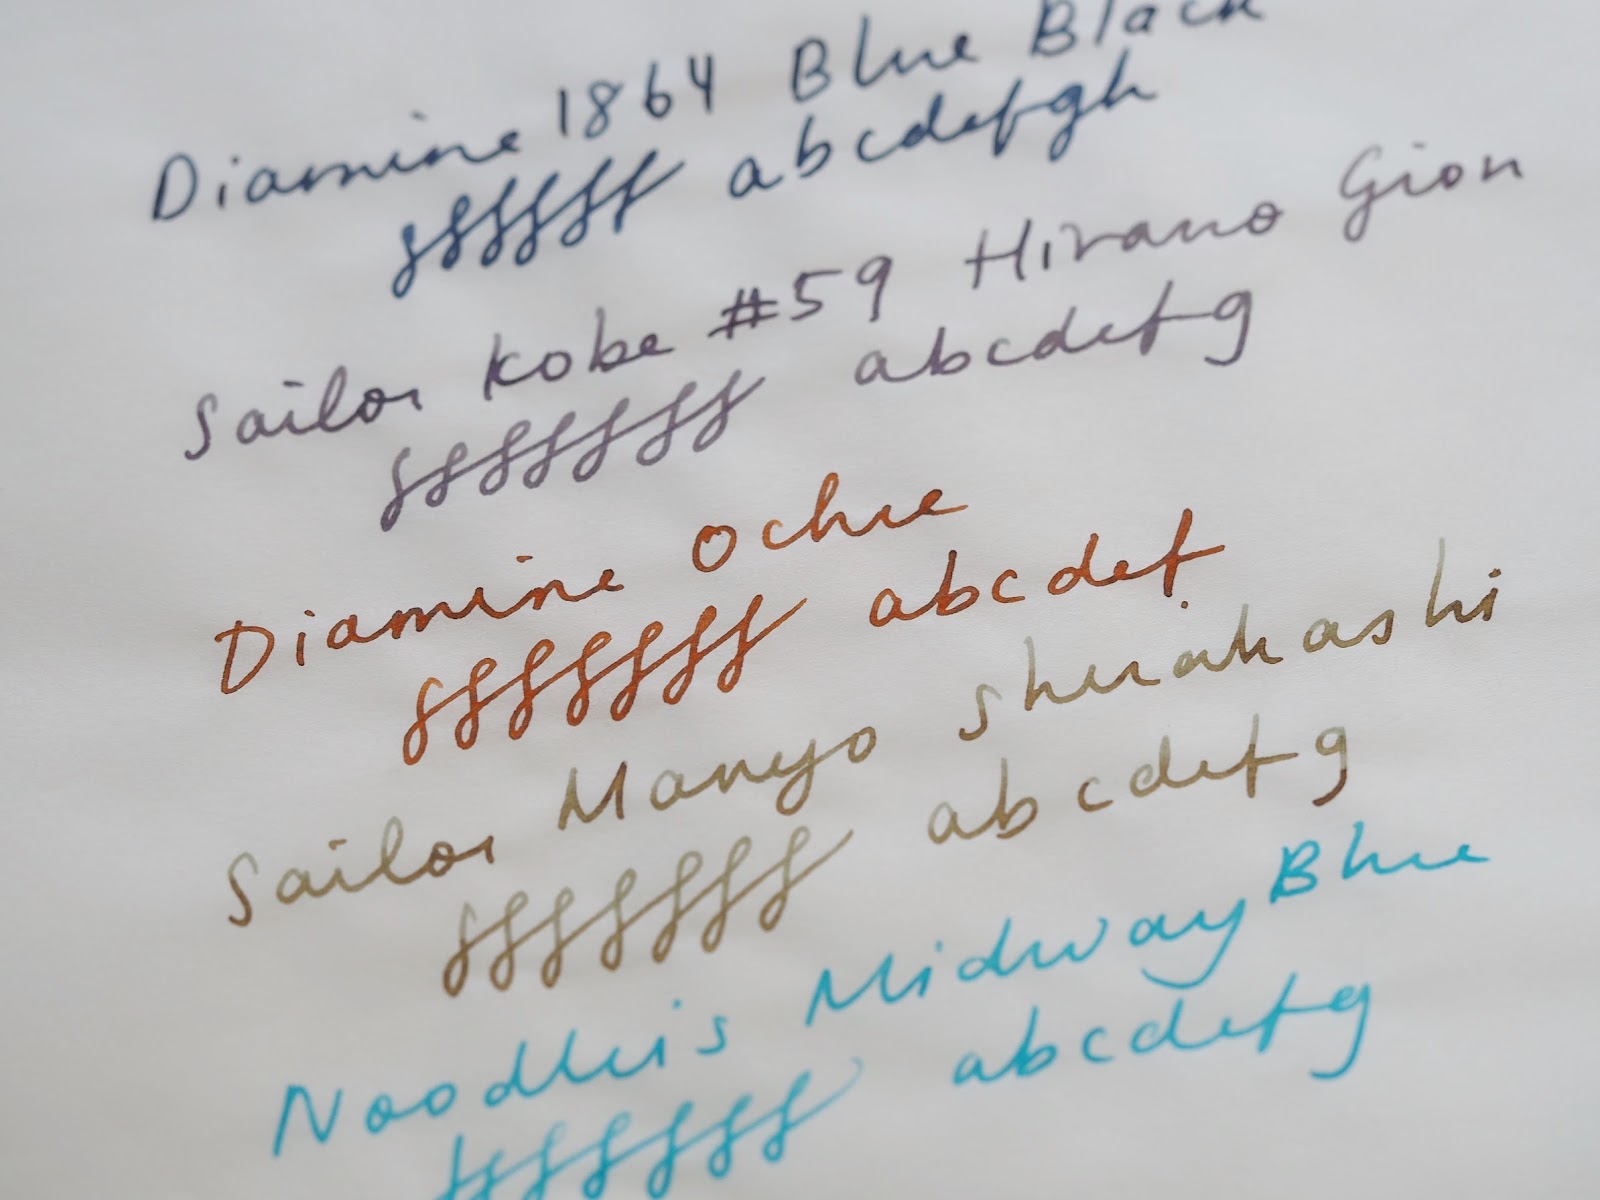 Diamine 1864 Blue Black
fffffff abcdefgh
Sailor Kobe #59 Hirano Gion
fffffff abcdefg
Diamine Ochre
fffffff abcdef
Sailor Manyo Shirakashi
fffffff abcdefg
Noodler's Midway Blue
fffffff abcdefg